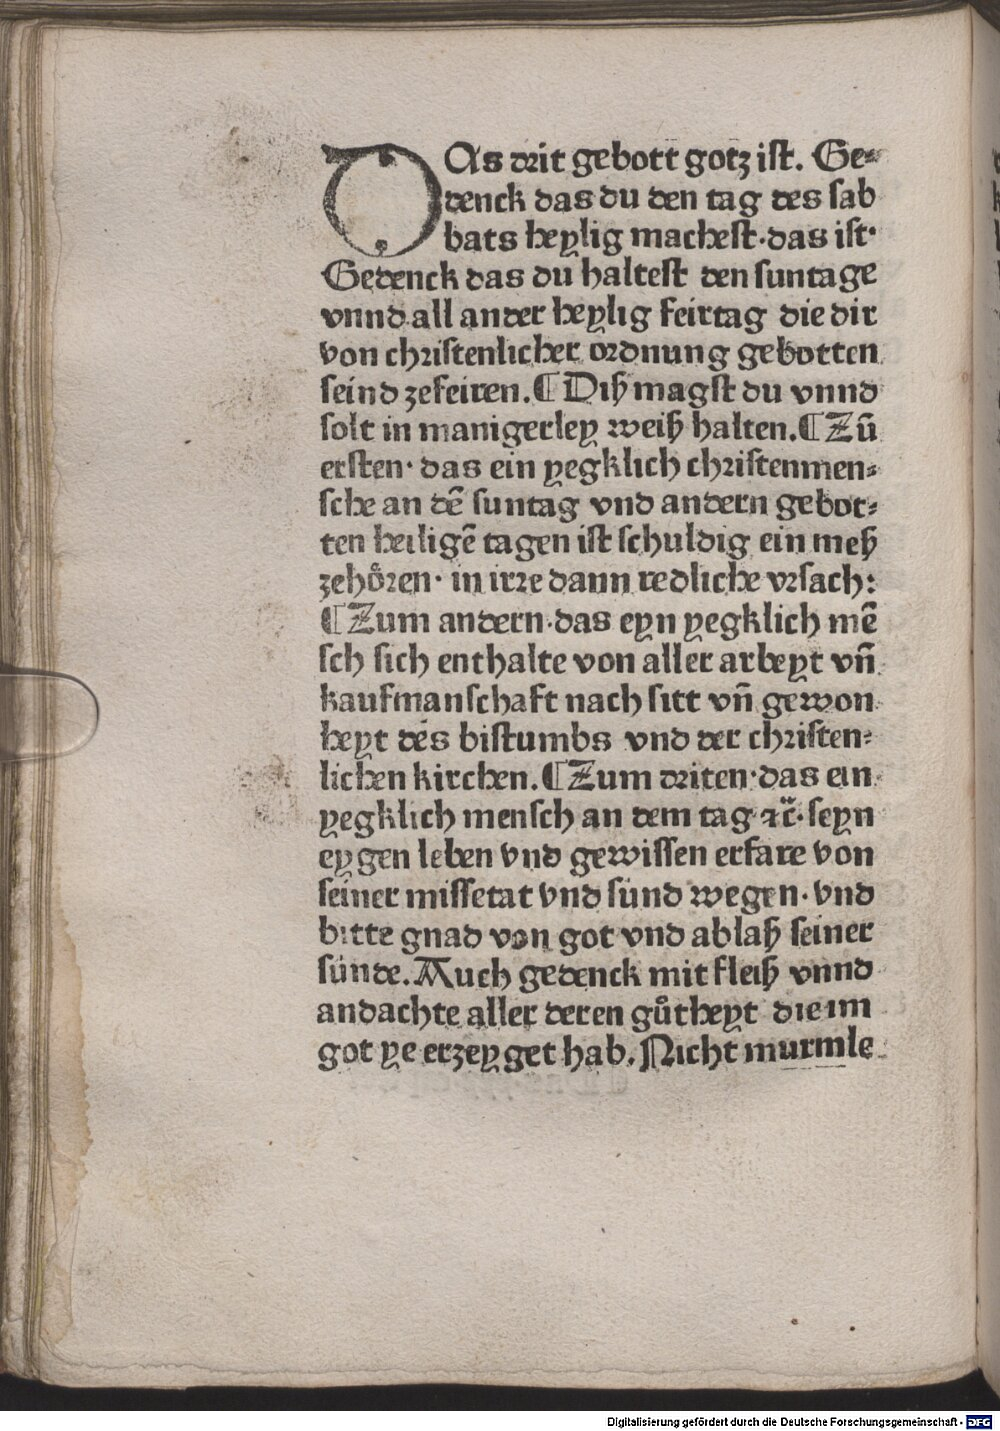 DAs drit gebott gotz iſt. Ge⸗
denck das du den tag des ſab
bats heylig macheſt·das iſt·
Gedenck das du halteſt den ſuntage
vnnd all ander heylig feirtag die dir
von chriſtenlicher ordnung gebotten
ſeind zefeiren.¶Diß magſt du vnnd
ſolt in manigerley weiß halten.¶Zū
erſten· das ein yegklich chriſtenmen⸗
ſche an dē ſuntag vnd andern gebot⸗
ten heiligē tagen iſt ſchuldig ein meß
zehoͤren· in irre dann redliche vrſach:
¶Zum andern·das eyn yegklich mē
ſch ſich enthalte von aller arbeyt vn̄
kaufmanſchaft nach ſitt vn̄ gewon
heyt des biſtumbs vnd der chriſten⸗
lichen kirchen.¶Zum driten·das ein
yegklich menſch an dem tag ⁊c̄·ſeyn
eygen leben vnd gewiſſen erfare von
ſeiner miſſetat vnd ſünd wegen·vnd
bitte gnad von got vnd ablaß ſeiner
ſünde.Auch gedenck mit fleiß vnnd
andachte aller deren guͦtheyt die im
got ye erzeyget hab.Nicht murmle
Digitalisierung gefördert durch die Deutsche Forschungsgemeinschaft - DFG